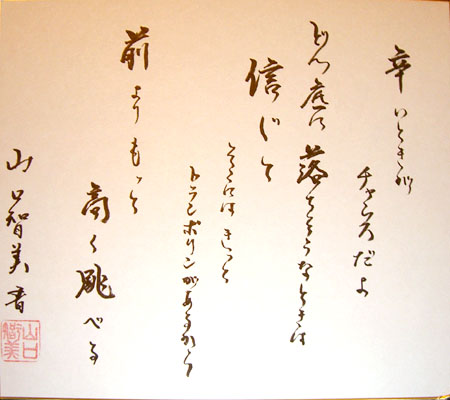 辛いときが
チャンスだよ
どん底に落ちそうなときは
信じて
そこにはきっと
トランポリンがあるから
前よりもっと
高く跳べる
山口智美書
山口智美